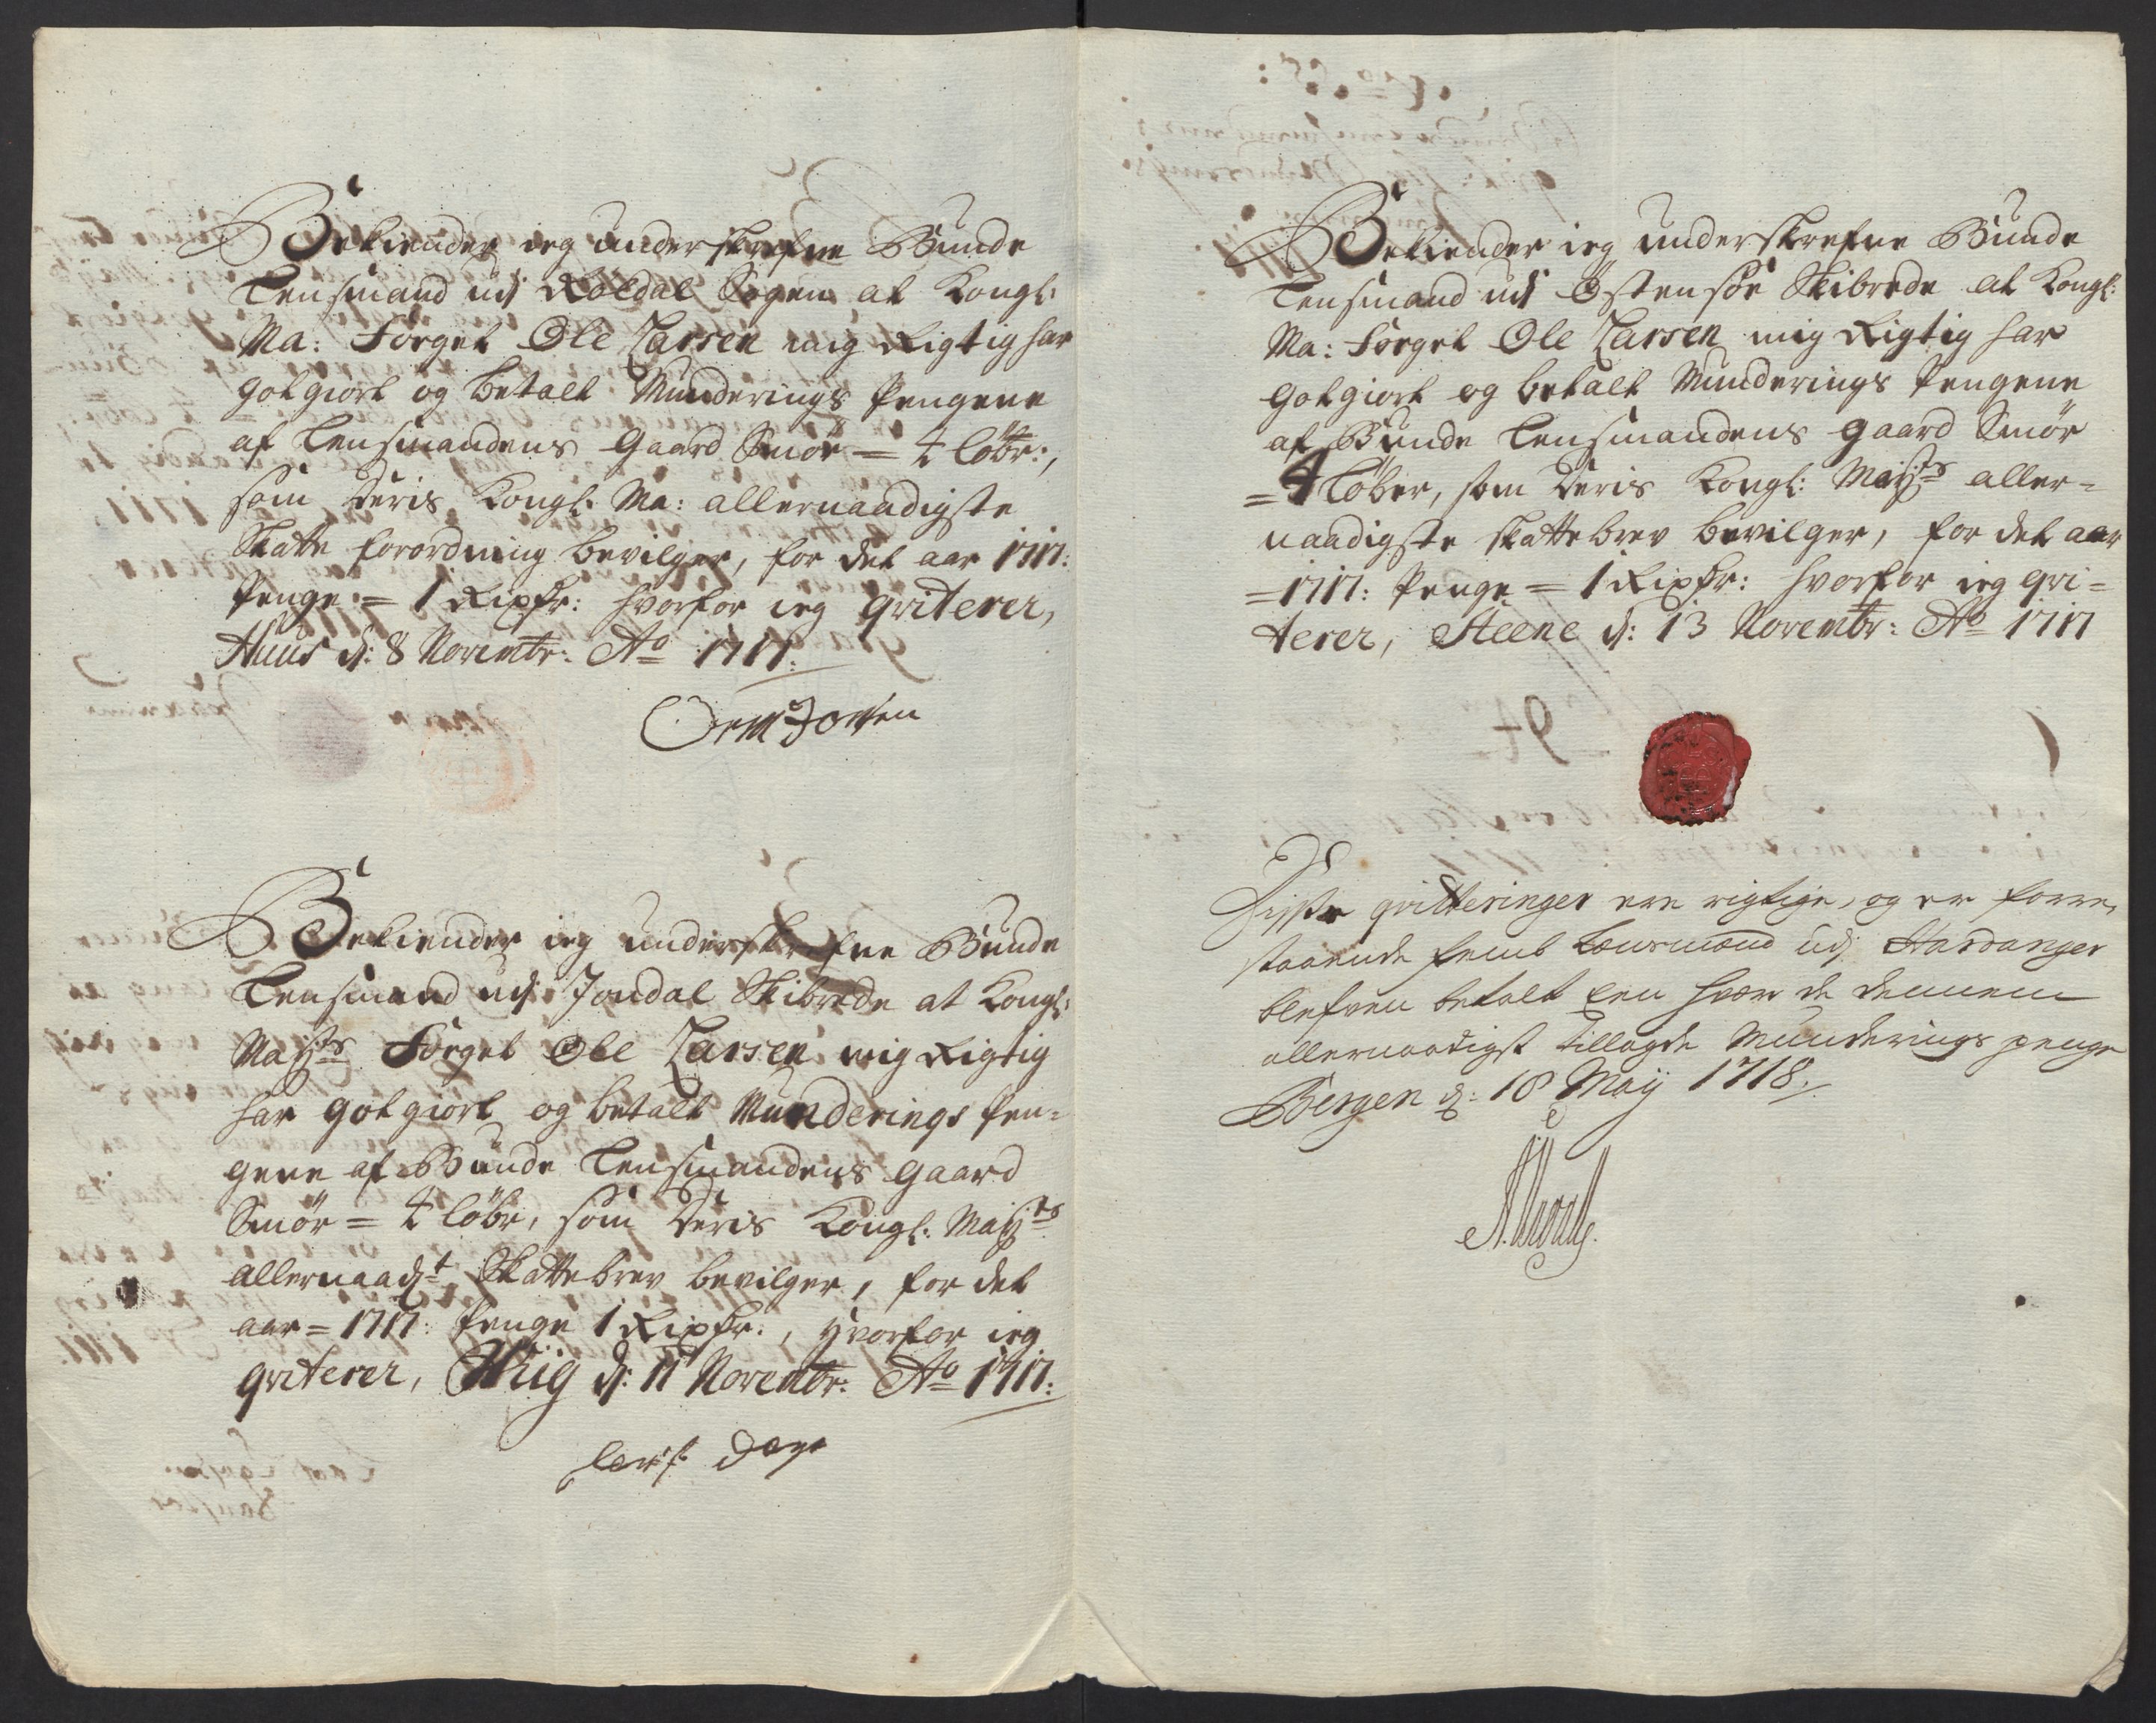 Bekiender ieg underskrefne Bunde
Lensmand udj Röldal Sogen at Kongl:
Ma: Foeget Ole Larsen mig Rigtig har
gotgiort og betalt Munderings Pengene
af Lensmandens gaard Smör = 4 löbr:,
som Deris Kongl: Ma: allernaadigste
Skatte forordning bevilger, for det aar 1717:
Penge = 1 Rixdr: hvorfor ieg qviterer,
Huus d: 8 Novembr: Ao 1717:
Orm
Bekiender ieg underskrefne Bunde
Lensmand udj Jondal Skibrede at Kongl:
Mayts Foeget Ole Larsen mig Rigtig
har gotgiort og betalt Munderings Pen=
gene af Bunde Lensmandens gaard
Smör = 4 löbr, som Deris Kongl: Mayts
allernaadt Skattebrev bevilger, for det
aar = 1717: Penge 1 Rixdr:, hvorfor ieg
qviterer, Wiig d: 11 Novembr: Ao 1717:
Bekiender ieg underskrefne Bunde
Lensmand udj Östensöe Skibrede at Kongl:
Ma: Foeget Ole Larsen mig Rigtig har
gotgiort og betalt Munderings Pengene
af Bunde Lensmandens gaard Smör
= 4 löber, som Deris Kongl: Mayts aller=
naadigste skattebrev bevilger, for det aar
= 1717: Penge = 1 Rixdr: hvorfor ieg qvi=
terer, Steene d: 13 Novembr: Ao 1717
Disse qvitteringer ere rigtige, og er forre,
staaende femb Lensmænd udj Hardanger
blefven betalt Een hver de dennem
allernaadigst tillagde Munderings penge
Bergen d: 18 Maÿ 1718.